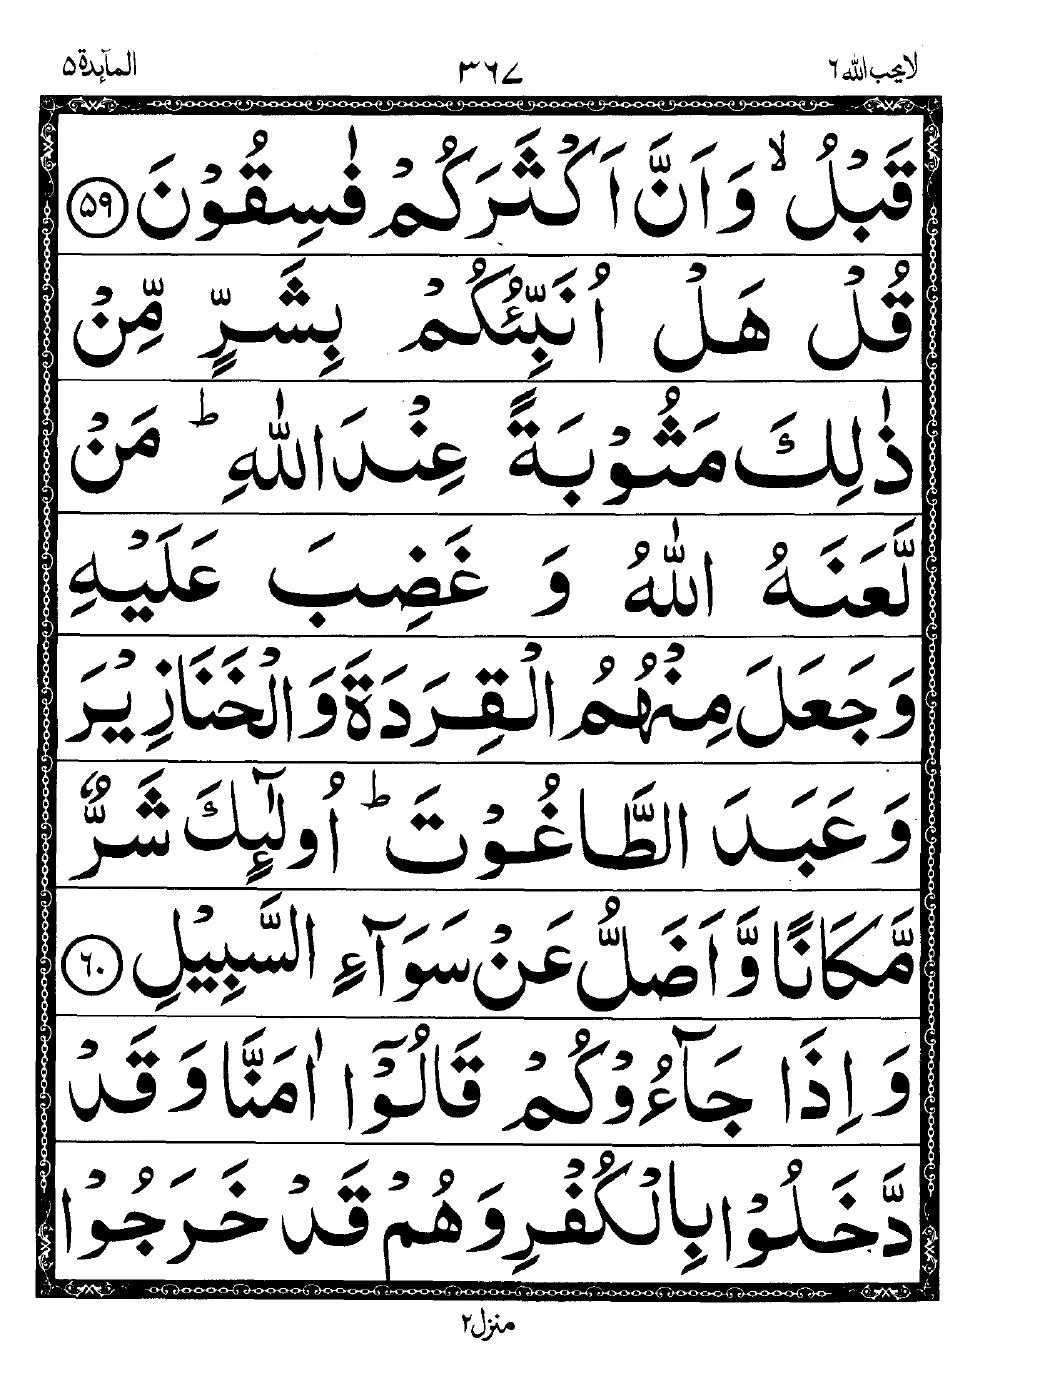 لا یحب الله ۶ ۳۶۷ المآىِٕدة ۵
قَبْلُ ۙ وَ اَنَّ اَكْثَرَكُمْ فٰسِقُوْنَ ۵۹
قُلْ هَلْ اُنَبِّئُكُمْ بِشَرٍّ مِّنْ
ذٰلِكَ مَثُوْبَةً عِنْدَ اللّٰهِ ؕ مَنْ
لَّعَنَهُ اللّٰهُ وَ غَضِبَ عَلَيْهِ
وَ جَعَلَ مِنْهُمُ الْقِرَدَةَ وَ الْخَنَازِيْرَ
وَ عَبَدَ الطَّاغُوْتَ ؕ اُولٰٓىِٕكَ شَرٌّ
مَّكَانًا وَّ اَضَلُّ عَنْ سَوَآءِ السَّبِيْلِ ۶۰
وَ اِذَا جَآءُوْكُمْ قَالُوْۤا اٰمَنَّا وَ قَدْ
دَّخَلُوْا بِالْكُفْرِ وَ هُمْ قَدْ خَرَجُوْا
منزل ۲